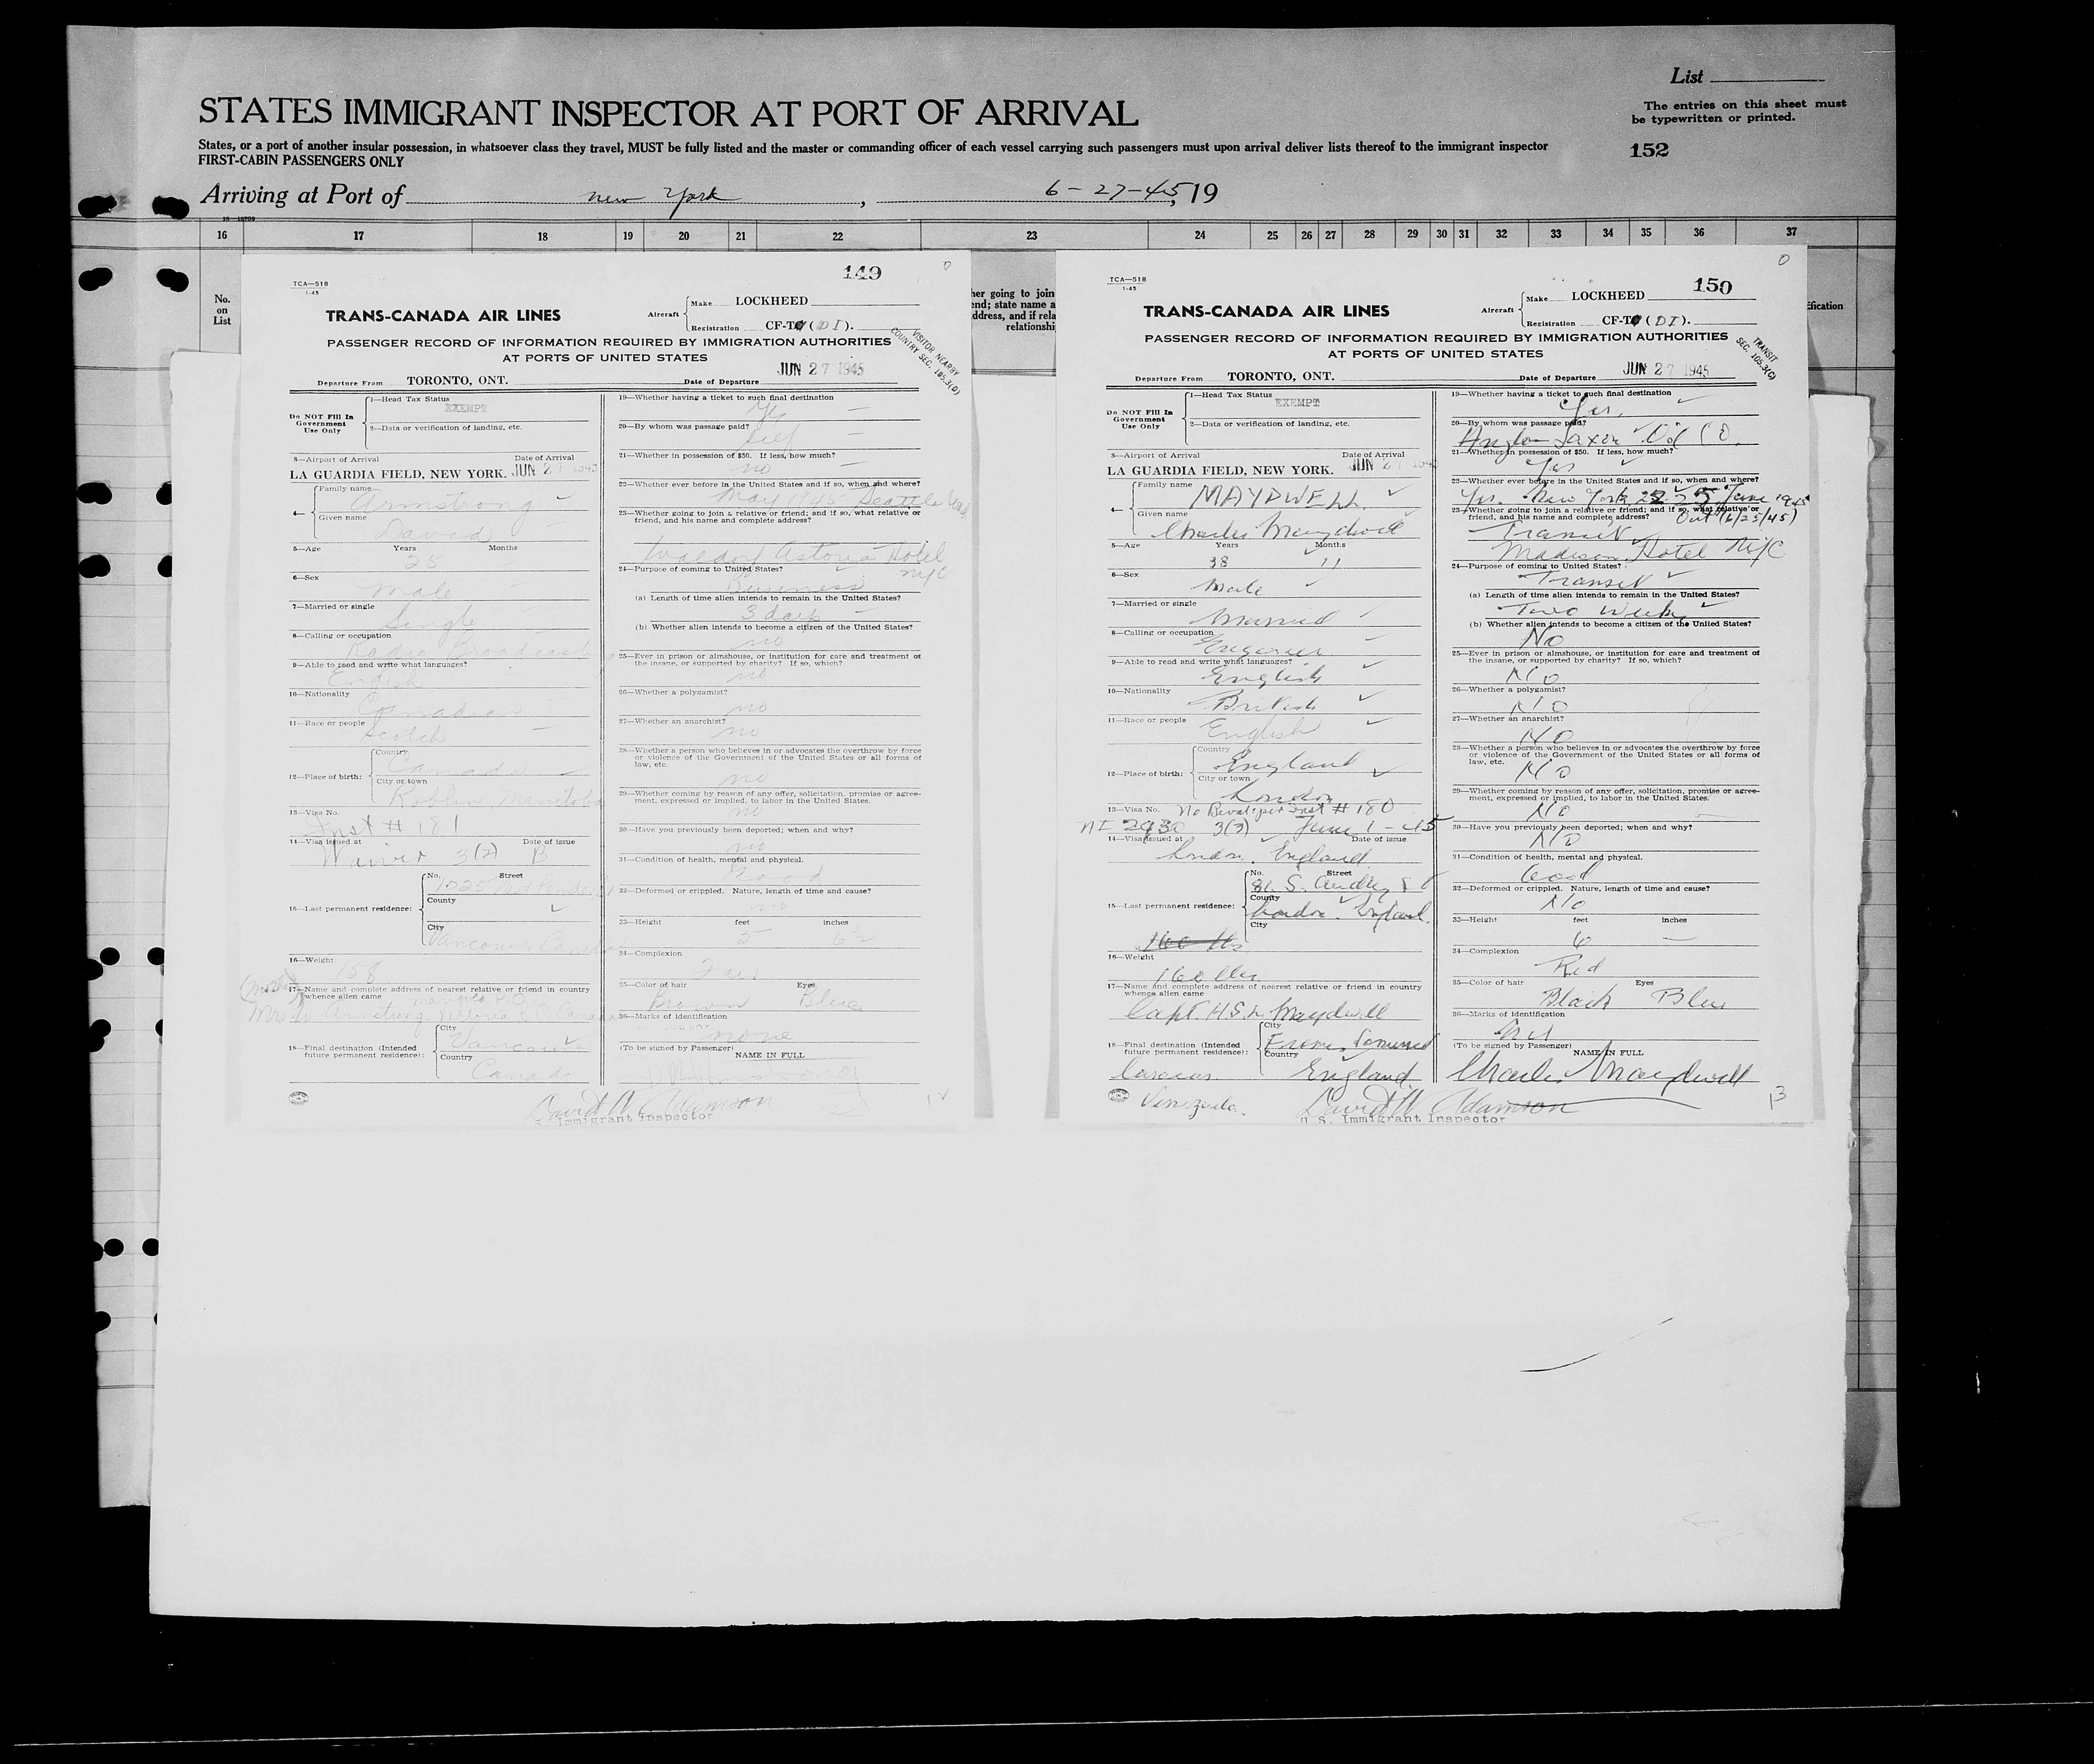 List
STATES IMMIGRANT INSPECTOR AT PORT OF ARRIVAL
The entries on this sheet must
be typewritten or printed.
States, or a port of another insular possession, in whatsoever class they travel, MUST be fully listed and the master or commanding officer of each vessel carrying such passengers must upon arrival deliver lists thereof to the immigrant inspector
FIRST-CABIN PASSENGERS ONLY
152
Arriving at Port of new York, 6-27-45, 19
16 17 18 19 20 21 22 23 24 25 26 27 28 29 30 31 32 33 34 35 36 37
No.
on
List
149
TCA—518
1-45
TRANS-CANADA AIR LINES
Aircraft Make LOCKHEED
Registration CF-T (DI).
PASSENGER RECORD OF INFORMATION REQUIRED BY IMMIGRATION AUTHORITIES
AT PORTS OF UNITED STATES
VISITOR NEARBY
COUNTRY SEC. 105.3(0)
Departure From TORONTO, ONT. Date of Departure JUN 27 1945
Do NOT Fill In
Government
Use Only
1—Head Tax Status
EXEMPT
2—Data or verification of landing, etc.
3—Airport of Arrival Date of Arrival
LA GUARDIA FIELD, NEW YORK. JUN 27 1945
4— Family name Armstrong
Given name David
5—Age Years Months
25
6—Sex
male
7—Married or single
Single
8—Calling or occupation
Radio Broadcast
9—Able to read and write what languages?
English
10—Nationality
Canadian
11—Race or people
Scotch
12—Place of birth: Country Canada
City or town Roblin, Manitoba
13—Visa No.
Inst # 181
14—Visa issued at Date of issue
Waiver 3(2) B
15—Last permanent residence: No. Street
County
City Vancouver Canada
16—Weight 158
17—Name and complete address of nearest relative or friend in country
whence alien came
Armstrong
18—Final destination (Intended
future permanent residence): City Vancouver
Country Canada
19—Whether having a ticket to such final destination
Yes
20—By whom was passage paid?
Self
21—Whether in possession of $50. If less, how much?
no
22—Whether ever before in the United States and if so, when and where?
May 1945 Seattle
23—Whether going to join a relative or friend; and if so, what relative or
friend, and his name and complete address?
Waldorf Astoria Hotel
NYC
24—Purpose of coming to United States?
Business
(a) Length of time alien intends to remain in the United States?
3 days
(b) Whether alien intends to become a citizen of the United States?
no
25—Ever in prison or almshouse, or institution for care and treatment of
the insane, or supported by charity? If so, which?
no
26—Whether a polygamist?
no
27—Whether an anarchist?
no
28—Whether a person who believes in or advocates the overthrow by force
or violence of the Government of the United States or all forms of
law, etc.
no
29—Whether coming by reason of any offer, solicitation, promise or agree-
ment, expressed or implied, to labor in the United States.
no
30—Have you previously been deported; when and why?
no
31—Condition of health, mental and physical.
Good
32—Deformed or crippled. Nature, length of time and cause?
no
33—Height feet inches
5 6½
34—Complexion
Fair
35—Color of hair Eyes
Brown Blue
36—Marks of identification
none
(To be signed by Passenger) NAME IN FULL
David N. Adamson
S. Immigrant Inspector
150
TCA—518
1-45
TRANS-CANADA AIR LINES
Aircraft Make LOCKHEED
Registration CF-T (DI).
PASSENGER RECORD OF INFORMATION REQUIRED BY IMMIGRATION AUTHORITIES
AT PORTS OF UNITED STATES
TRANSIT
SEC. 105.3(G)
Departure From TORONTO, ONT. Date of Departure JUN 27 1945
Do NOT Fill In
Government
Use Only
1—Head Tax Status
EXEMPT
2—Data or verification of landing, etc.
3—Airport of Arrival Date of Arrival
LA GUARDIA FIELD, NEW YORK. JUN 27
4— Family name MAYDWELL
Given name Charles Maydwell
5—Age Years Months
38 11
6—Sex
Male
7—Married or single
Married
8—Calling or occupation
Engineer
9—Able to read and write what languages?
English
10—Nationality
British
11—Race or people
English
12—Place of birth: Country England
City or town London
13—Visa No. Inst # 180
3(3) June 1-45
14—Visa issued at Date of issue
London. England
15—Last permanent residence: No. Street
County London. England.
City
16—Weight
160 lbs
17—Name and complete address of nearest relative or friend in country
whence alien came
Capt. H.S.L. Maydwell
18—Final destination (Intended
future permanent residence): City
Country England.
Caracas.
Venezuela.
19—Whether having a ticket to such final destination
Yes.
20—By whom was passage paid?
Anglo-Saxon Oil CO.
21—Whether in possession of $50. If less, how much?
Yes
22—Whether ever before in the United States and if so, when and where?
Yes. New York, 25 June 1945
23—Whether going to join a relative or friend; and if so, what relative or
friend, and his name and complete address?
Out (6/25/45)
Transit
Madison Hotel NYC
24—Purpose of coming to United States?
Transit
(a) Length of time alien intends to remain in the United States?
Two Weeks
(b) Whether alien intends to become a citizen of the United States?
No
25—Ever in prison or almshouse, or institution for care and treatment of
the insane, or supported by charity? If so, which?
NO
26—Whether a polygamist?
NO
27—Whether an anarchist?
NO
28—Whether a person who believes in or advocates the overthrow by force
or violence of the Government of the United States or all forms of
law, etc.
NO
29—Whether coming by reason of any offer, solicitation, promise or agree-
ment, expressed or implied, to labor in the United States.
NO
30—Have you previously been deported; when and why?
NO
31—Condition of health, mental and physical.
Good
32—Deformed or crippled. Nature, length of time and cause?
NO
33—Height feet inches
6 —
34—Complexion
Red
35—Color of hair Eyes
Black Blue
36—Marks of identification
Nil
(To be signed by Passenger) NAME IN FULL
Charles Maydwell
David N. Adamson
U S. Immigrant Inspector
13